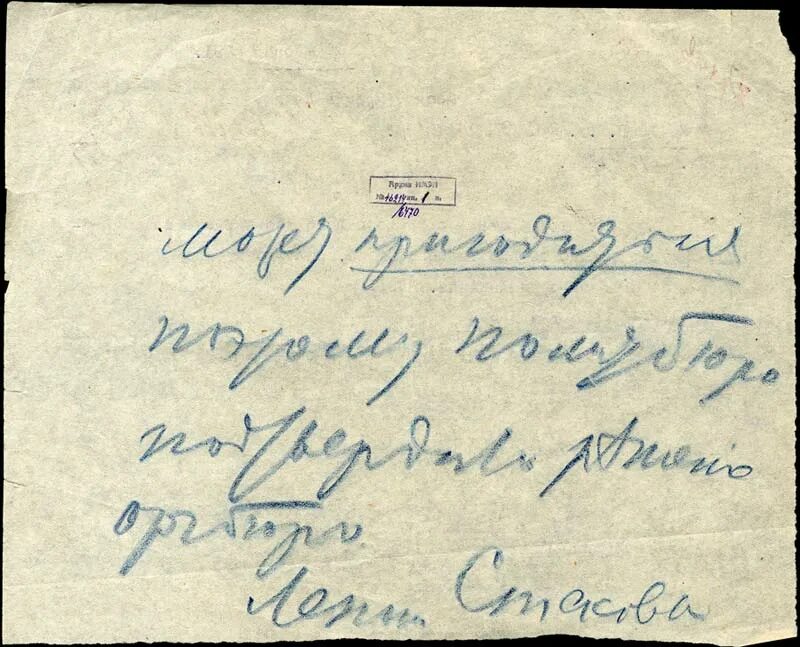 Архив ИМЭЛ
№16214 ит. 1 п.
16470
могут пригодиться
поэтому политбюро
подтвердило решение
оргбюро
Ленин Стасова